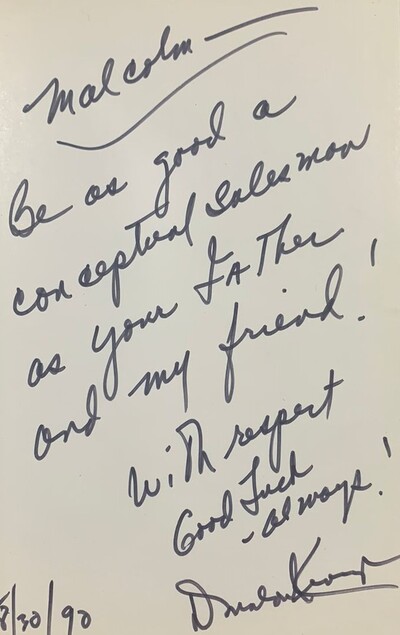 Malcolm —
Be as good a
conceptual salesman
as your Father
and my friend!
With respect
Good Luck
- always!
8/30/90